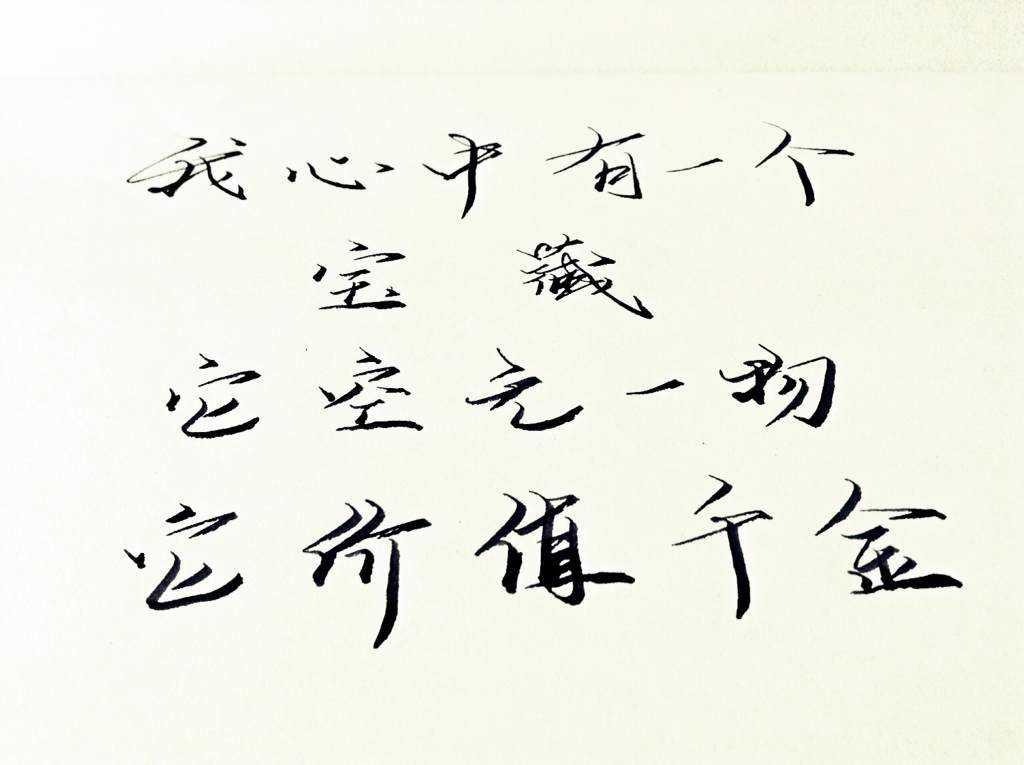 我心中有一个
宝藏
它空无一物
它价值千金